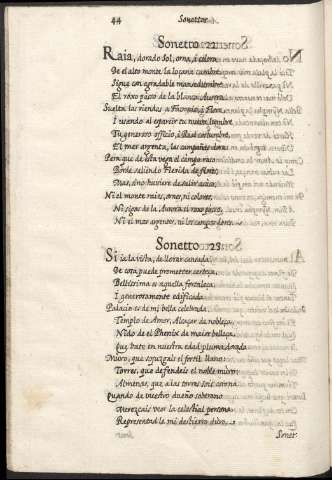 44 Sonettos.
Sonetto 22.
Raia, dorado Sol, orna, i colora
De el alto monte la loçana cumbre,
Sigue con agradable mansedumbre
El roxo passo de la blanca Aurora.
Suelta las riendas a Fauonio, i Flora,
I usando al esparzir tu nueva lumbre
Tu generoso officio, i Real costumbre,
El mar argenta, las campañas dora.
Para que de esta vega el campo raso
Borde saliendo Flerida de flores;
Mas, si no huviere de salir acaso,
Ni el monte raies, ornes, ni colores,
Ni sigas de la Aurora el roxo passo,
Ni el mar argentes, ni los campos dores.
Sonetto 23.
Si ia la vista, de llorar cansada,
De cosa puede prometer certeza,
Bellissima es aquella fortaleza,
I generosamente edificada.
Palacio es de mi bella celebrada,
Templo de Amor, Alcaçar de nobleza,
Nido de el Phenix de maior belleza,
Que bate en nuestra edad pluma dorada
Muro, que sojuzgais el fertil llano,
Torres, que defendeis el noble muro,
Almenas, que a las torres sois corona
Quando de vuestro dueño soberano
Merezcais veer la celestial persona
Representad le mi destierro duro.
Sonet